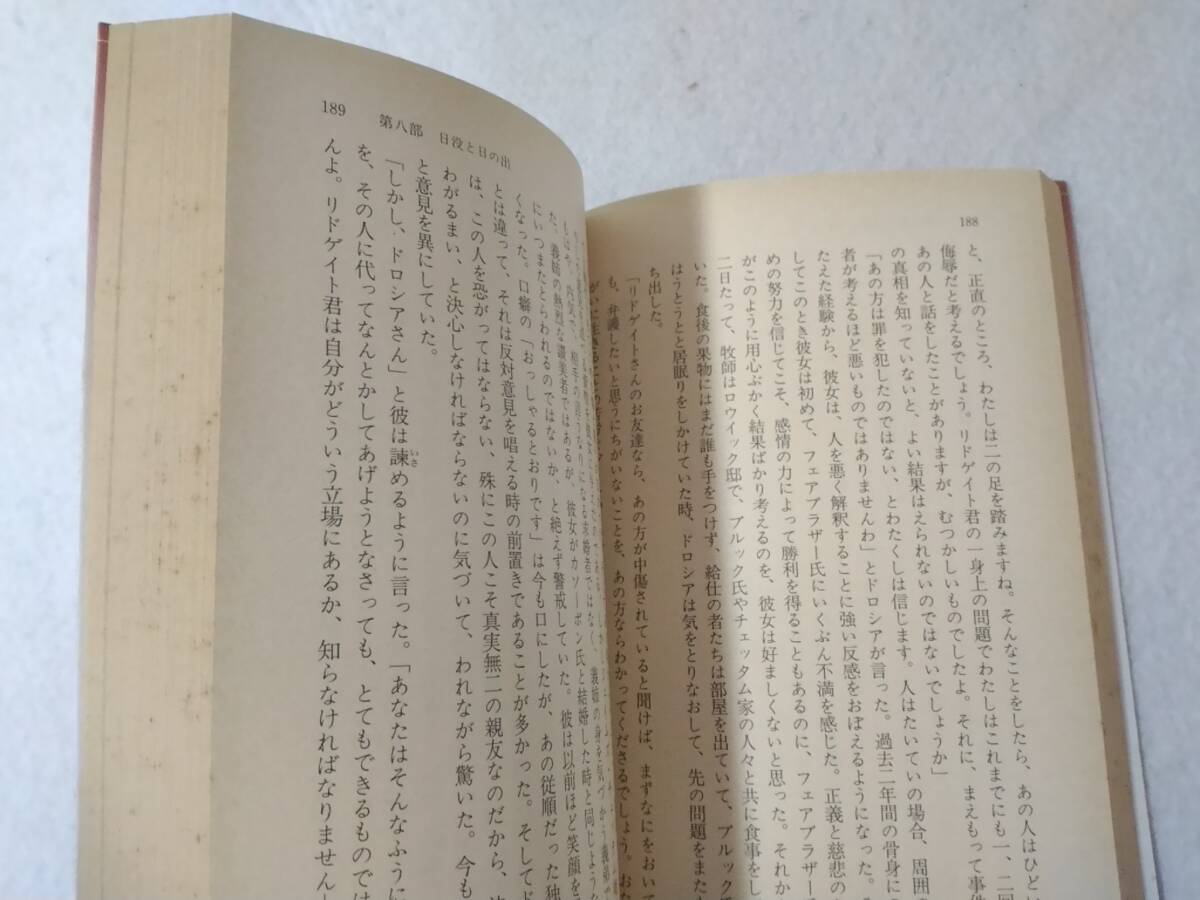 188
と、正直のところ、わたしは二の足を踏みますね。そんなことをしたら、あの人はひど
侮辱だと考えるでしょう。リドゲイト君の一身上の問題でわたしはこれまでにも一、二回
あの人と話をしたことがありますが、むつかしいものでしたよ。それに、まえもって事件
の真相を知っていないと、よい結果はえられないのではないでしょうか」
「あの方は罪を犯したのではない、とわたくしは信じます。人はたいていの場合、周囲の
者が考えるほど悪いものではありませんわ」とドロシアが言った。過去二年間の骨身に
たえた経験から、彼女は、人を悪く解釈することに強い反感をおぼえるようになった。
してこのとき彼女は初めて、フェアブラザー氏にいくぶん不満を感じた。正義と慈悲の
めの努力を信じてこそ、感情の力によって勝利を得ることもあるのに、フェアブラザー
がこのように用心ぶかく結果ばかり考えるのを、彼女は好ましくないと思った。それか
二日たって、牧師はロウイック邸で、ブルック氏やチェッタム家の人々と共に食事をし
いた。食後の果物にはまだ誰も手をつけず、給仕の者たちは部屋を出ていて、ブルック
はうとうとと居眠りをしかけていた時、ドロシアは気をとりなおして、先の問題をまた
ち出した。
「リドゲイトさんのお友達なら、あの方が中傷されていると聞けば、まずなにをおいて
も、弁護したいと思うにちがいないことを、あの方ならわかってくださるでしょう。おな
189 第八部 日没と日の出
もはや、内気で、相手の言うなりになる未婚者ではなく、義姉の身を気づかう義弟で
た。義姉の熱烈な讃美者ではあるが、彼女がカソーボン氏と結婚した時と同じような
にいつまたとらわれるのではないか、と絶えず警戒していた。彼は以前ほど笑顔を
くなった。口癖の「おっしゃるとおりです」は今も口にしたが、あの従順だった独
とは違って、それは反対意見を唱える時の前置きであることが多かった。そしてド
は、この人を恐がってはならない、殊にこの人こそ真実無二の親友なのだから、
わがるまい、と決心しなければならないのに気づいて、われながら驚いた。今も
と意見を異にしていた。
「しかし、ドロシアさん」と彼は諫いさめるように言った。「あなたはそんなふうに
を、その人に代ってなんとかしてあげようとなさっても、とてもできるものでは
んよ。リドゲイト君は自分がどういう立場にあるか、知らなければなりません